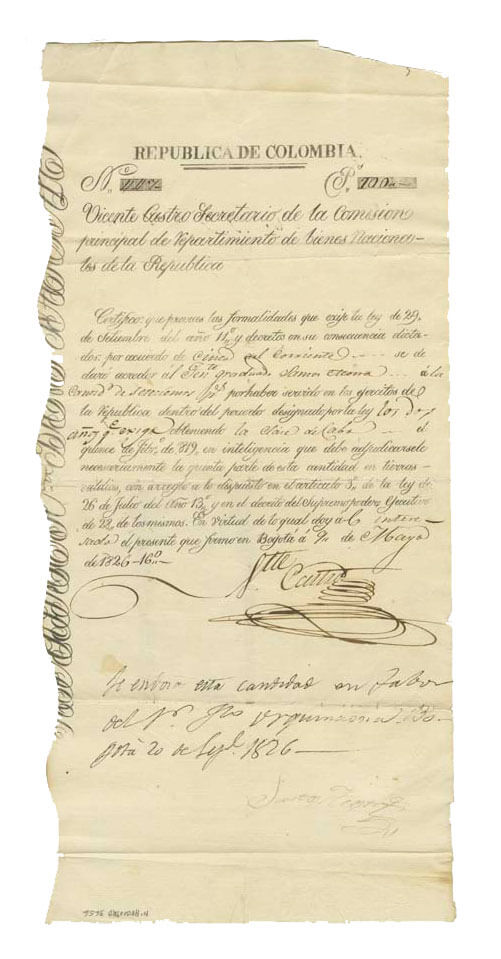 REPUBLICA DE COLOMBIA.
N.º
P.º 100
Vicente Castro Secretario de la Comision
principal de repartimiento de bienes Naciona-
les de la Republica
Certifico: que previas las formalidades que exije la ley de 29,
de Setiembre del año 11º y decretos en su consecuencia dicta-
dos: por acuerdo de Cinco del corriente se de
claró acreedor al graduado a la
por haber servido en los ejercitos de
la Republica dentro del periodo designado por la ley los dos
años q.e exige obteniendo la Clase de Cabo el
quince de Feb.º de 819, en inteligencia que debe adjudicarsele
necesariamente la quinta parte de esta cantidad en tierras
valdias, con arreglo a lo dispuesto en el articulo 3º de la ley de
26 de Julio del Año 13º y en el decreto del Supremo poder Ejecutivo
de 22, de los mismos. En virtud de lo qual doy al intere-
sado el presente que firmo en Bogotá á 9, de Mayo
de 1826-16º
V.tte Castro
Se endosa esta cantidad en fabor
del S.r Urquinaona Bo-
gotá 20 de Sep.e 1826